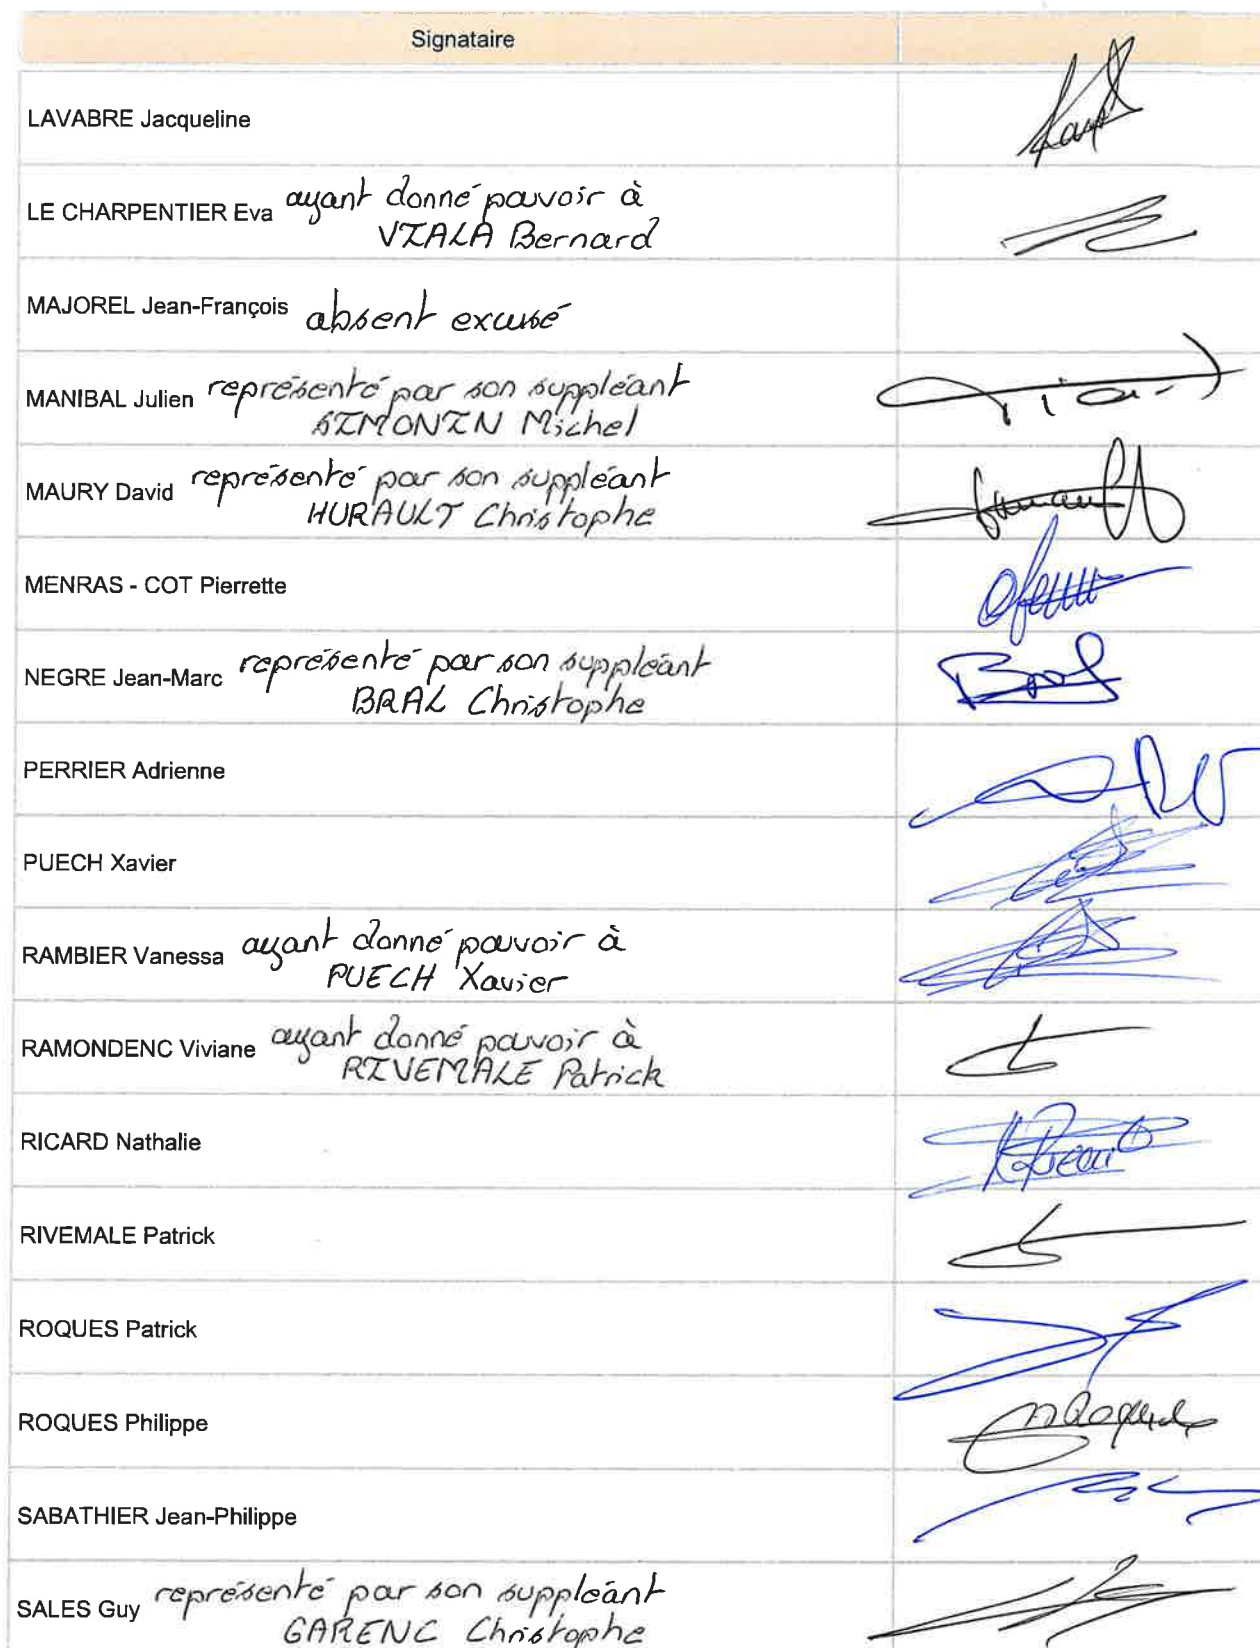 Signataire
LAVABRE Jacqueline
LE CHARPENTIER Eva ayant donné pouvoir à
VIALA Bernard
MAJOREL Jean-François absent excusé
MANIBAL Julien représenté par son suppléant
SIMONIN Michel
MAURY David représenté par son suppléant
HURAULT Christophe
MENRAS - COT Pierrette
NEGRE Jean-Marc représenté par son suppléant
BRAL Christophe
Bral
PERRIER Adrienne
PUECH Xavier
RAMBIER Vanessa ayant donné pouvoir à
PUECH Xavier
RAMONDENC Viviane ayant donné pouvoir à
RIVEMALE Patrick
RICARD Nathalie
RIVEMALE Patrick
ROQUES Patrick
ROQUES Philippe
SABATHIER Jean-Philippe
SALES Guy représenté par son suppléant
GARENC Christophe